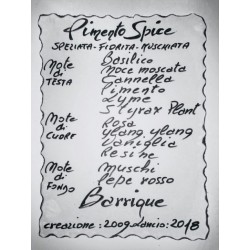 Pimento Spice
SPEZIATA - FIORITA - MUSCHIATA
Note di TESTA
Basilico
Noce moscata
Cannella
Pimento
Lyme
Styrax Plant
Note di CUORE
Rosa
ylang ylang
Vaniglia
Resine
Note di FONDO
Muschi
Pepe rosso
Barrique
creazione: 2009 Lancio: 2018